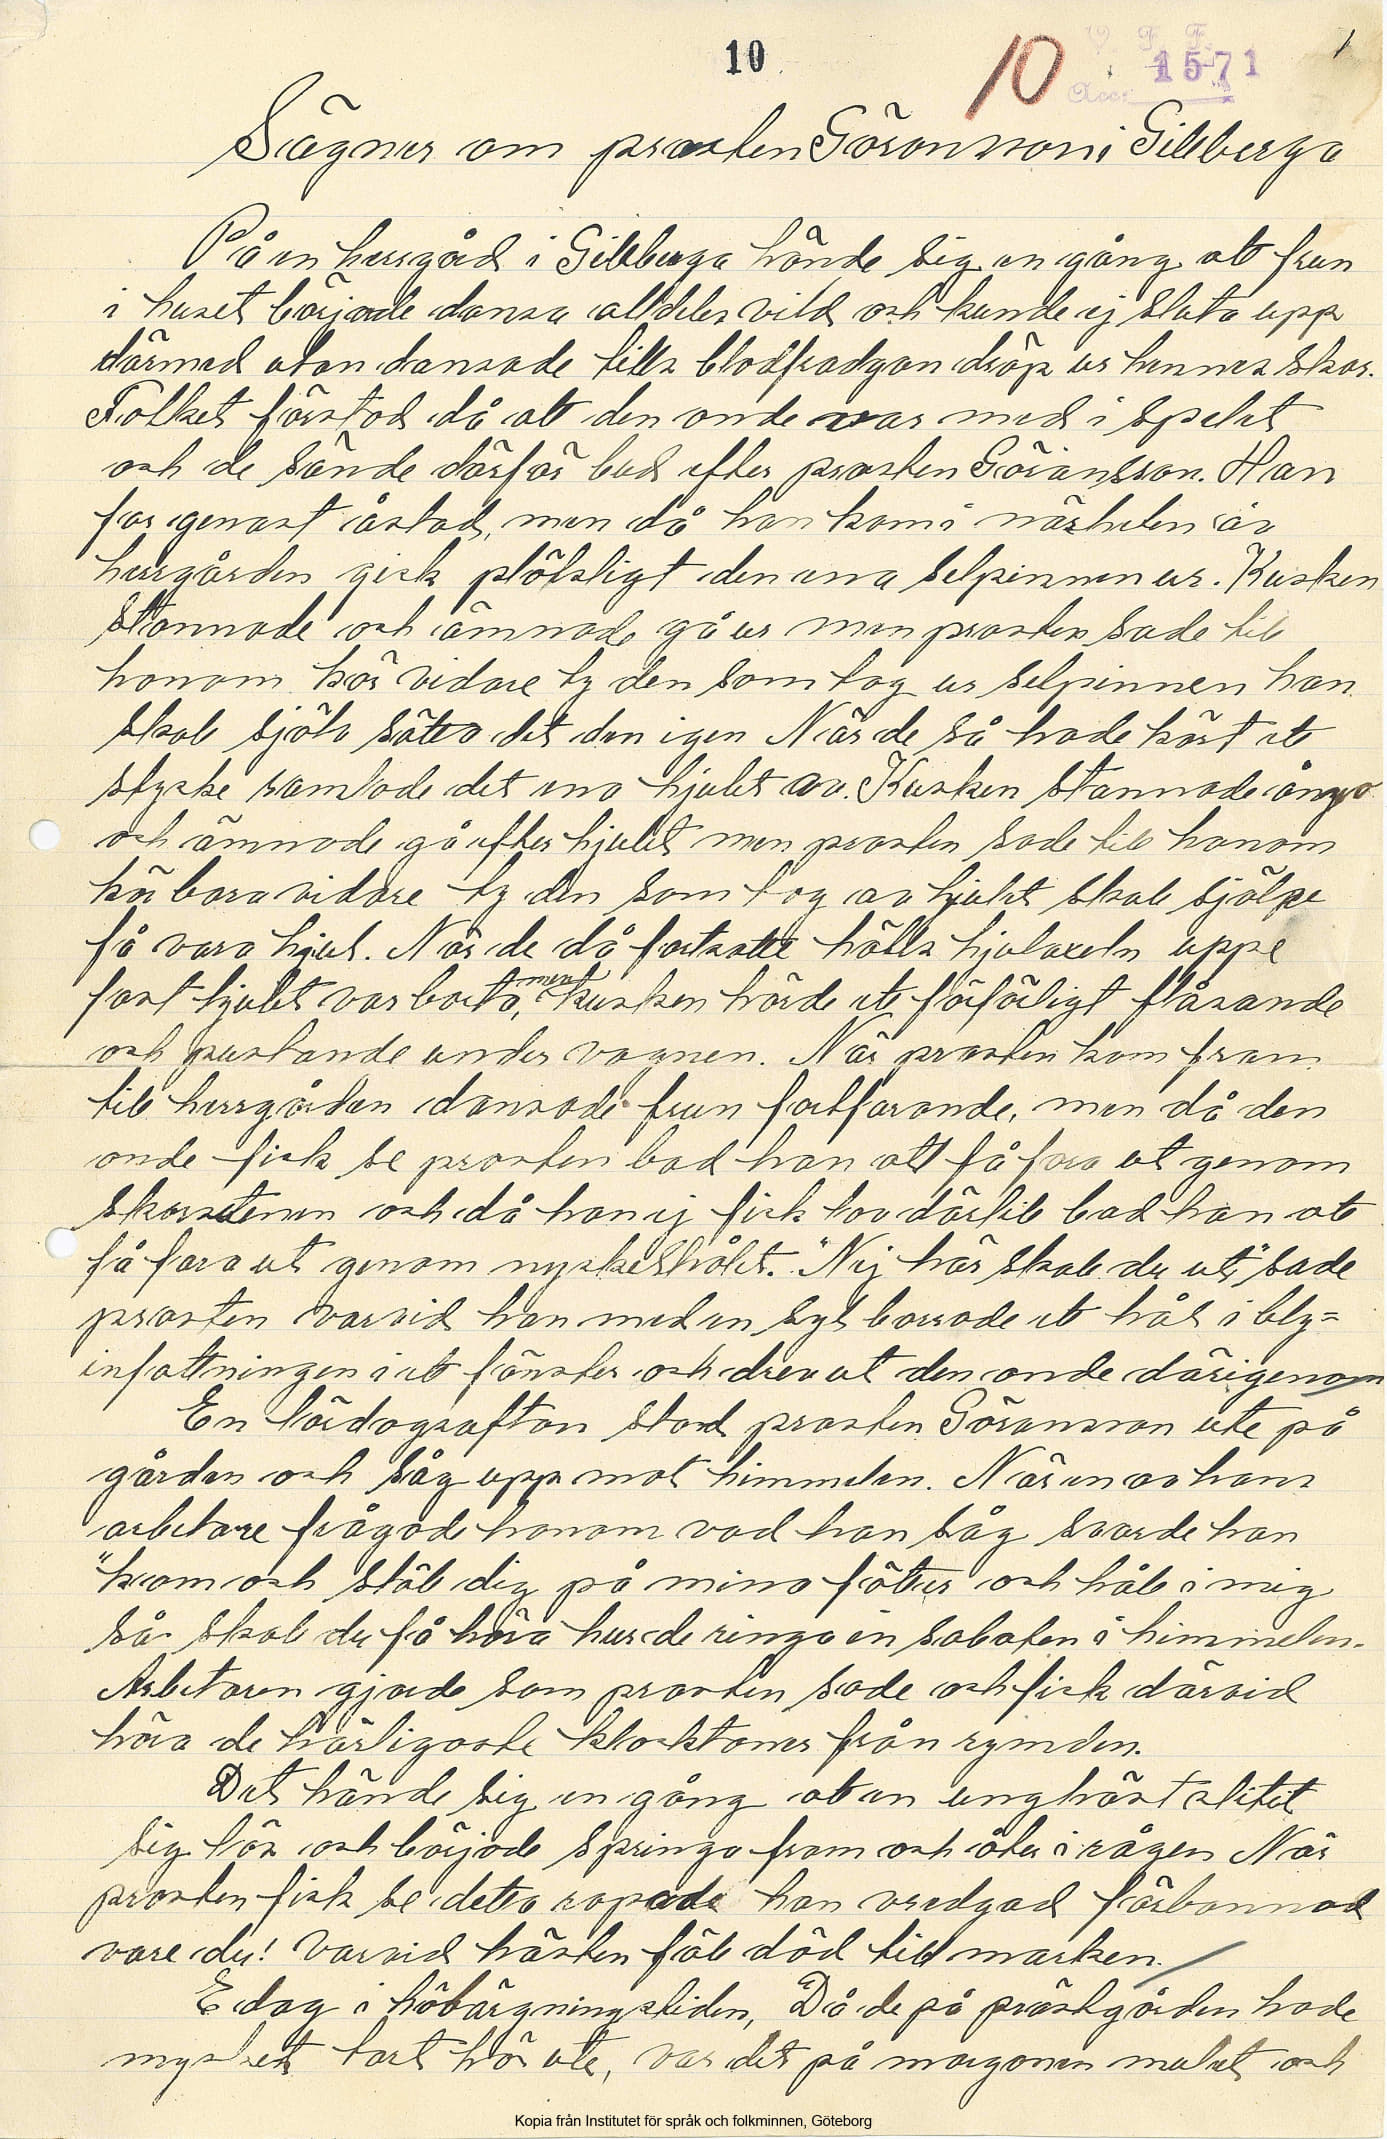 10
10
V. F. F.
Acc: 1571
1
Sägner om prosten Göransson i Gillberga
På en herrgård i Gillberga hände sig en gång att frun
i huset började dansa alldeles vild och kunde ej sluta upp
därmed utan dansade tills blodfradgan dröp ur hennes skor.
Folket förstod då att den onde var med i spelet
och de sände därför bud efter prosten Göransson. Han
for genast åstad, men då han kom i närheten av
herrgården gick plötsligt den ena selpinnen ur. Kusken
stannade och ämnade gå ur men prosten sade till
honom kör vidare ty den som tog ur selpinnen han
skall själv sätta dit den igen När de så hade kört ett
stycke ramlade det ena hjulet av. Kusken stannade ånyo
och ämnade gå efter hjulet men prosten sade till honom
kör bara vidare ty den som tog av hjulet skall själve
få vara hjul. När de då fortsatte hölls hjulaxeln uppe
fast hjulet var borta, ment kusken hörde ett förfärligt flåsande
och pustande under vagnen. När prosten kom fram
till herrgården dansade frun fortfarande, men då den
onde fick se prosten bad han att få fara ut genom
skorstenen och då han ej fick lov därtill bad han att
få fara ut genom nyckelhålet. "Nej här skall du ut" sade
prosten varvid han med en syl borrade ett hål i bly=
infattningen i ett fönster och drev ut den onde därigenom
En lördagsafton stod prosten Göransson ute på
gården och såg upp mot himmelen. När en av hans
arbetare frågade honom vad han såg svarde han
"kom och ställ dig på mina fötter och håll i mig
så skall du få höra hur de ringa in sabaten i himmelen.
Arbetaren gjorde som prosten sade och fick därvid
höra de härligaste klocktoner från rymden.
Det hände sig en gång att en unghäst slitit
sig lös och började springa fram och åter i rågen När
prosten fick se detta ropade han vredgad förbannad
vare du! Varvid hästen föll död till marken.
E dag i höbärgningstiden, Då de på prästgården hade
mycket tort hö ute, var det på morgonen mulet och
Kopia från Institutet för språk och folkminnen, Göteborg